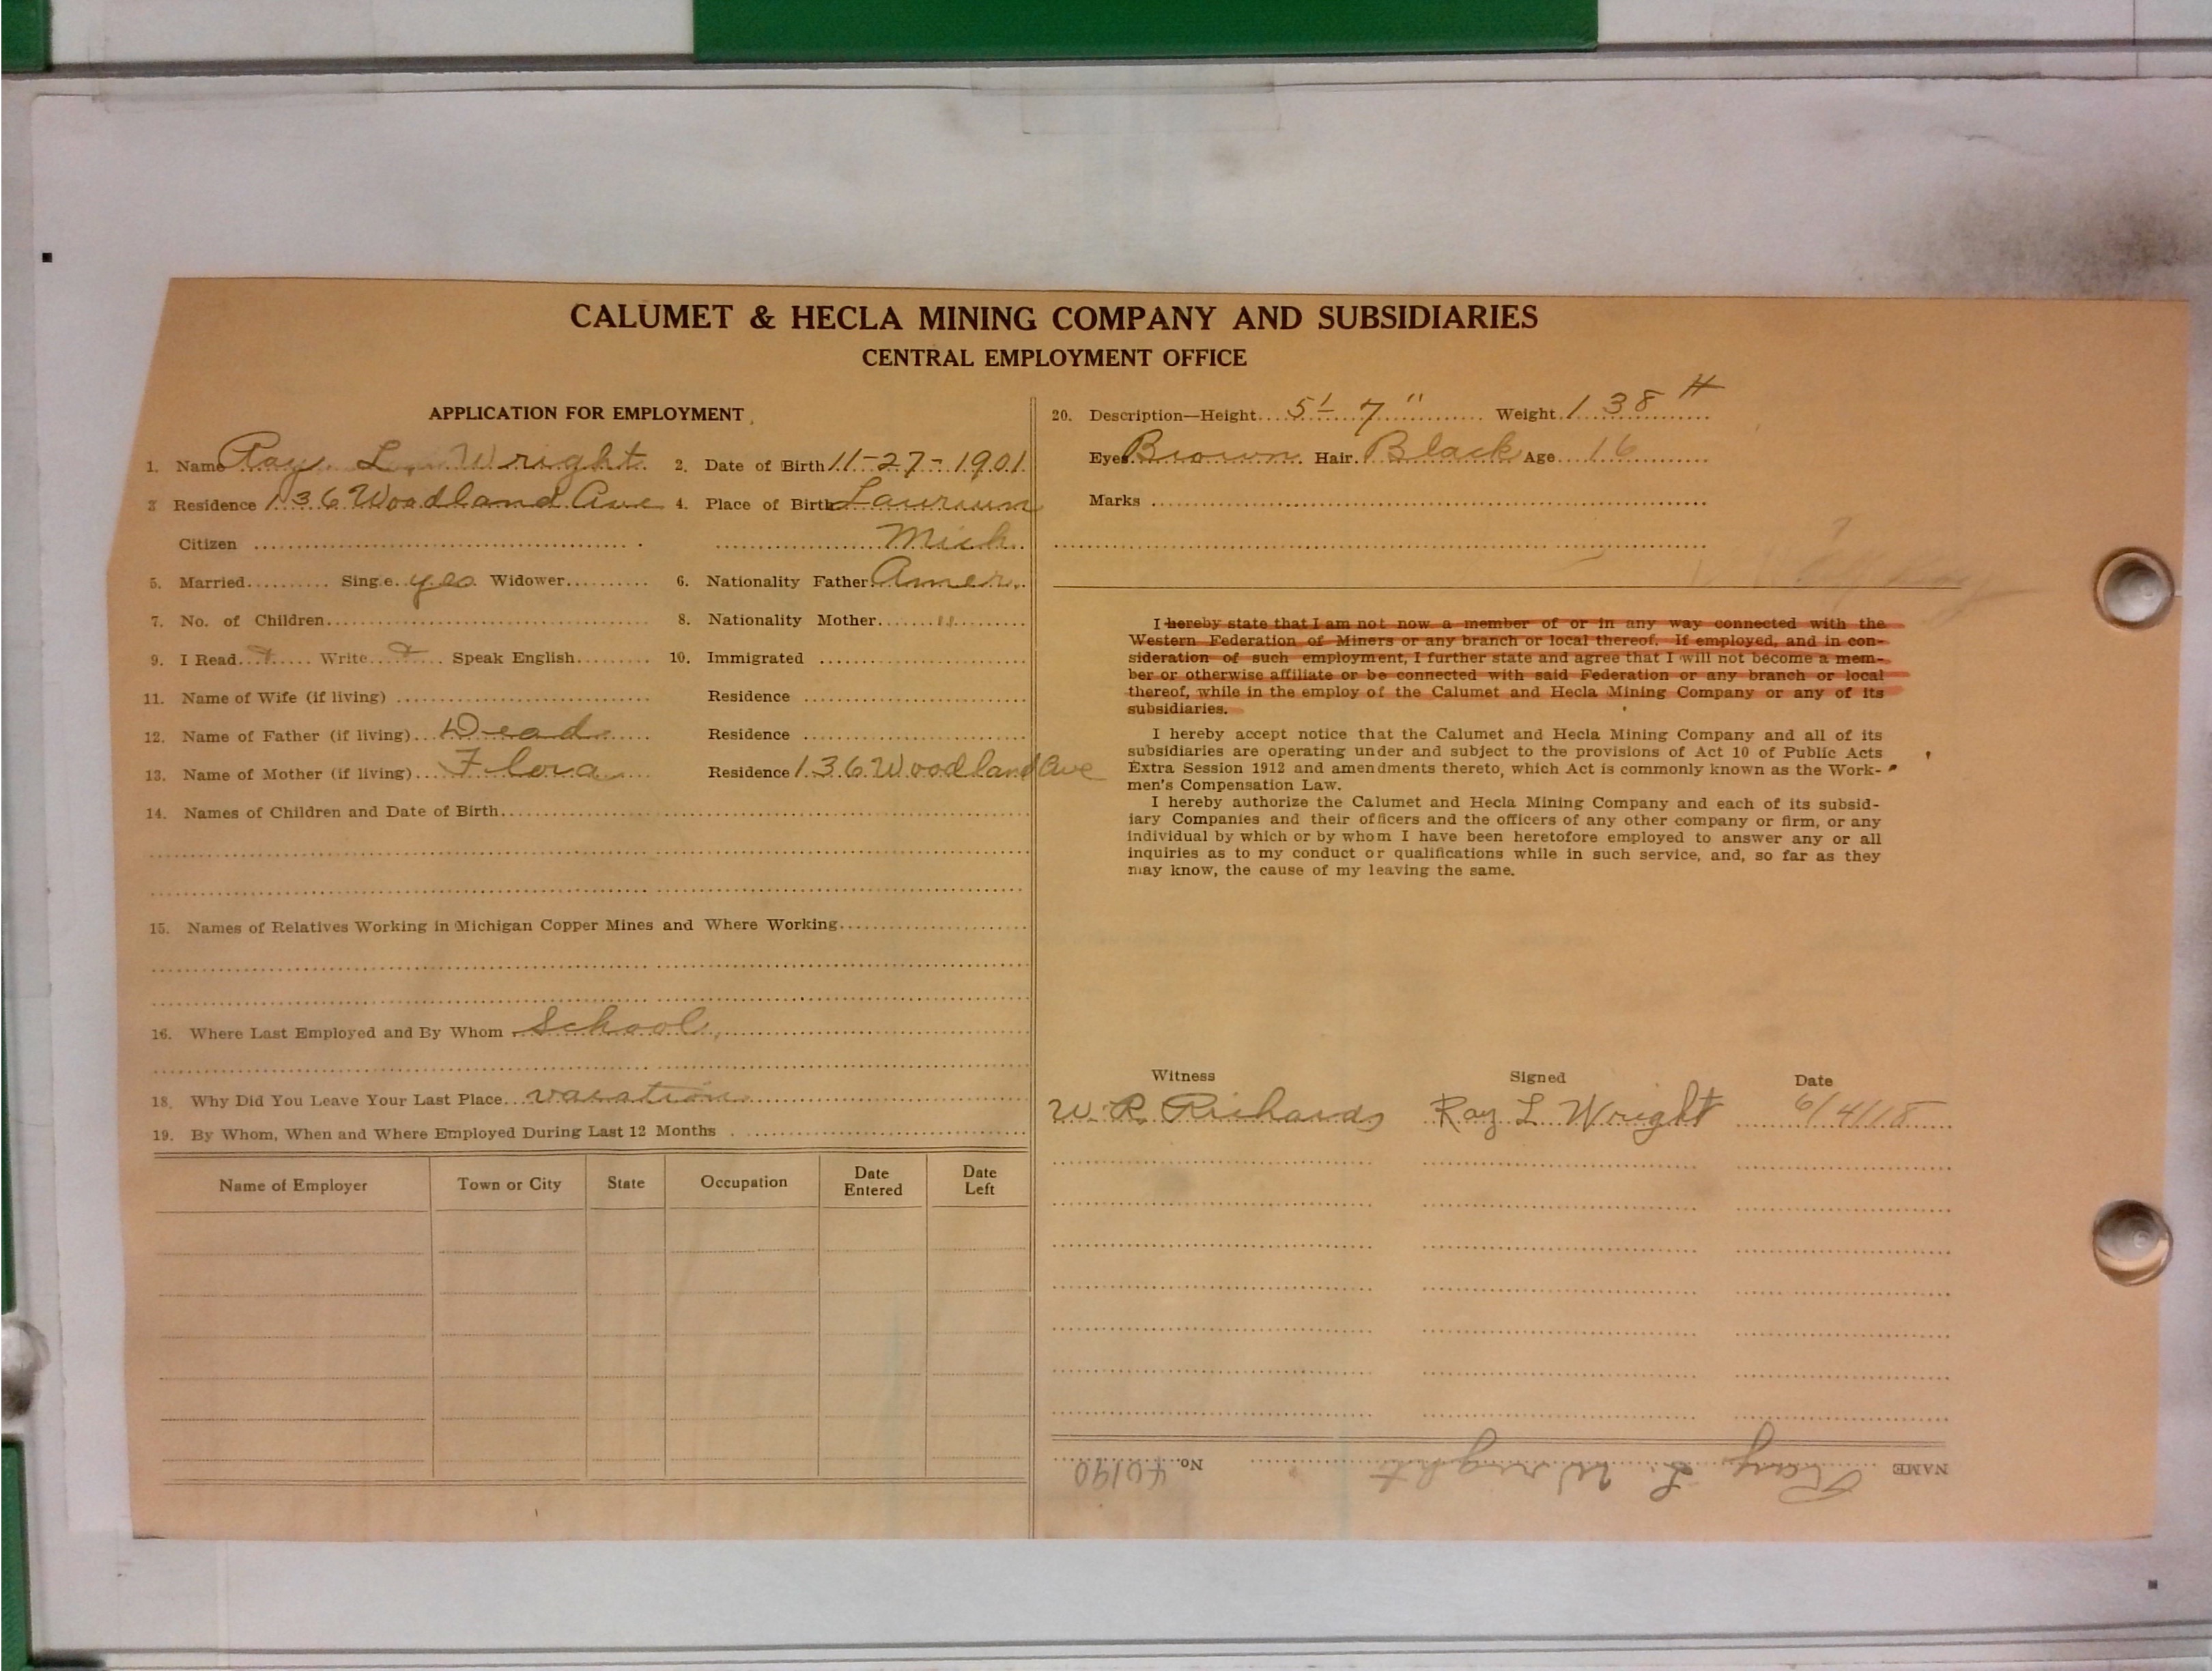 CALUMET & HECLA MINING COMPANY AND SUBSIDIARIES
CENTRAL EMPLOYMENT OFFICE
APPLICATION FOR EMPLOYMENT
1. Name Ray L. Wright 2. Date of Birth 11-27-1901
3 Residence 136 Woodland Ave 4. Place of Birth Laurium
Citizen Mich.
5. Married Single yes Widower 6. Nationality Father Amer.
7. No. of Children 8. Nationality Mother "
9. I Read + Write + Speak English 10. Immigrated
11. Name of Wife (if living) Residence
12. Name of Father (if living) Dead Residence
13. Name of Mother (if living) Flora Residence 136 Woodland Ave
14. Names of Children and Date of Birth
15. Names of Relatives Working in Michigan Copper Mines and Where Working
16. Where Last Employed and By Whom School
18. Why Did You Leave Your Last Place vacation
19. By Whom, When and Where Employed During Last 12 Months
Name of Employer Town or City State Occupation Date Entered Date Left
20. Description—Height 5'- 7" Weight 138 #
Eyes Brown Hair Black Age 16
Marks
I hereby state that I am not now a member of or in any way connected with the
Western Federation of Miners or any branch or local thereof. If employed, and in con-
sideration of such employment, I further state and agree that I will not become a mem-
ber or otherwise affiliate or be connected with said Federation or any branch or local
thereof, while in the employ of the Calumet and Hecla Mining Company or any of its
subsidiaries.
I hereby accept notice that the Calumet and Hecla Mining Company and all of its
subsidiaries are operating under and subject to the provisions of Act 10 of Public Acts
Extra Session 1912 and amendments thereto, which Act is commonly known as the Work-
men's Compensation Law.
I hereby authorize the Calumet and Hecla Mining Company and each of its subsid-
iary Companies and their officers and the officers of any other company or firm, or any
individual by which or by whom I have been heretofore employed to answer any or all
inquiries as to my conduct or qualifications while in such service, and, so far as they
may know, the cause of my leaving the same.
Witness Signed Date
W. R. Richards Ray L. Wright 6/4/18
NAME Ray L. Wright No. 40190